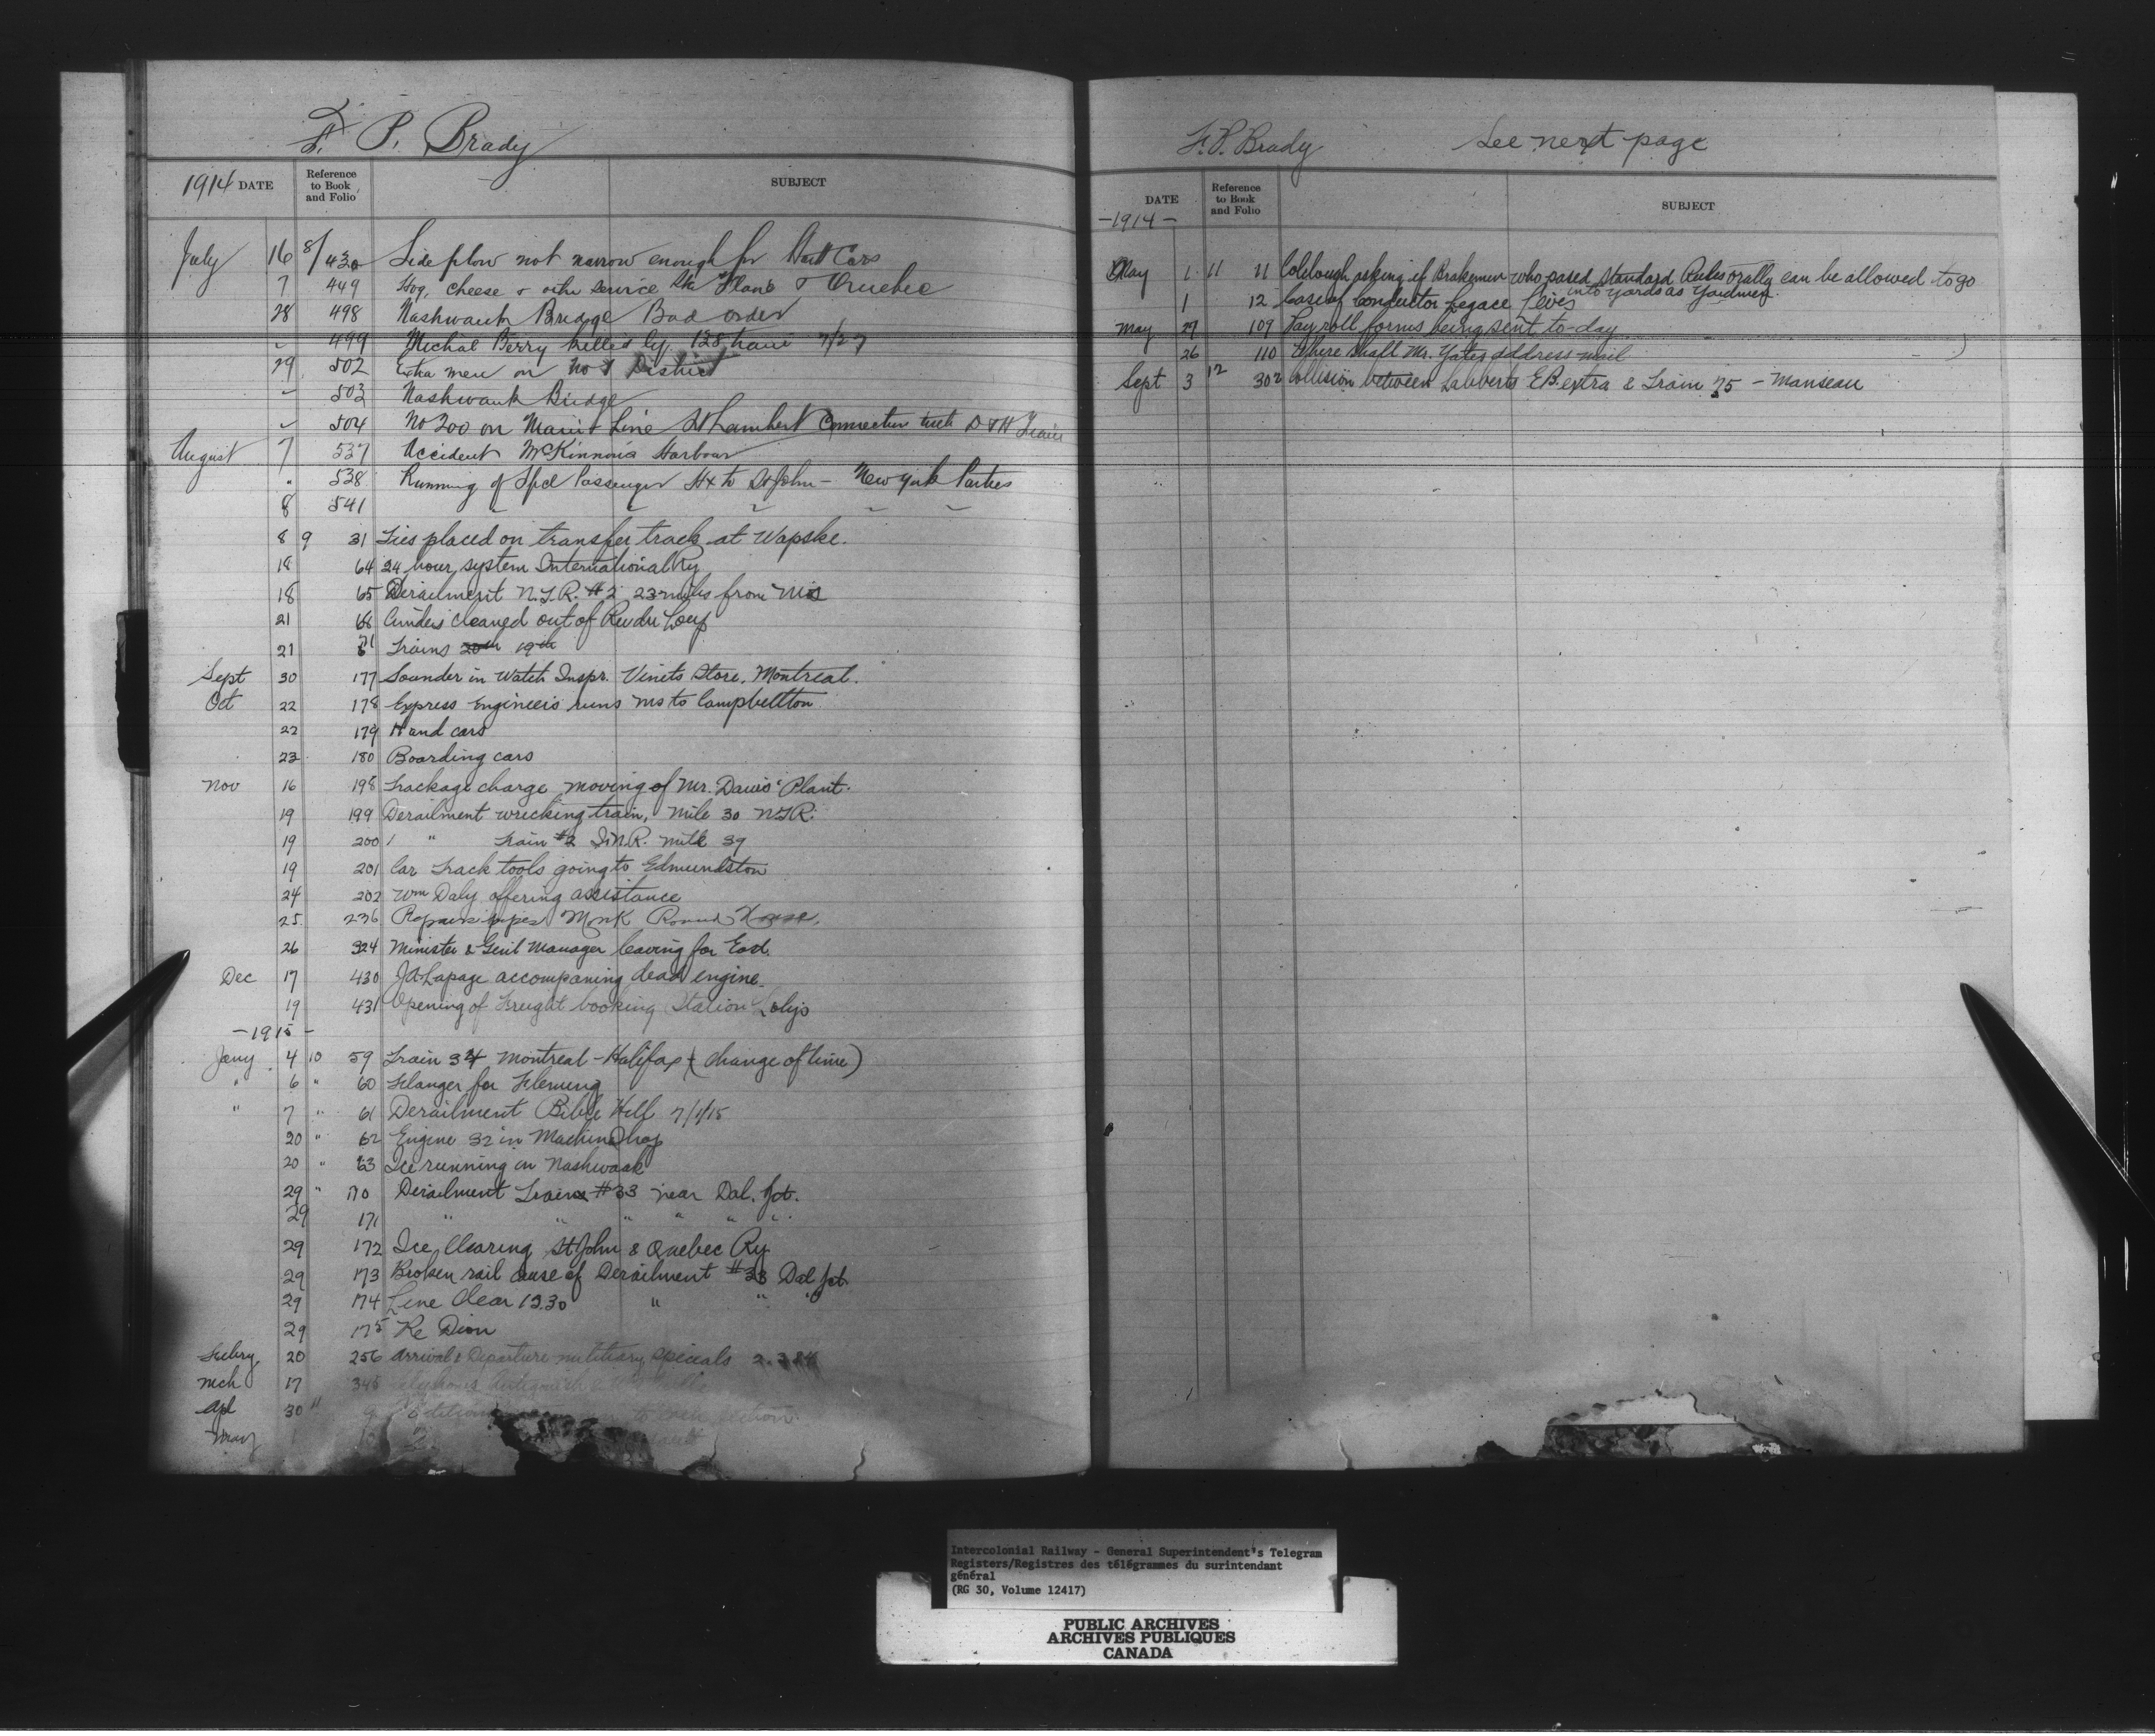 F. P. Brady
1914 DATE Reference to Book and Folio SUBJECT
July 16 8/430 Side plow not narrow enough for Hart Cars
7 449 Hog, Cheese & other service Ste Flavie & Quebec
28 498 Nashwauk Bridge Bad order
" 499 Michal Berry killed by 128 train 7/27
29 502 Extra men on No 1 District
" 503 Nashwauk Bridge
" 504 No 200 on Main Line St Lambert Connection with D & H Train
August 7 537 Accident McKinnons Harbour
" 538 Running of Spcl Passenger Hx to St John - New York Parties
8 541 " " " " "
8 9 31 Ties placed on transfer track at Wapske.
18 64 24 hour system International Ry
18 65 Derailment N.T.R. #2 23 miles from
21 66 Cinders cleaned out of Riv du Loup
21 71 Trains 20th 19th
Sept 30 177 Sounder in Watch Inspr. Vinets Store, Montreal.
Oct 22 178 Express Engineers runs Ms to Campbellton
22 179 Hand cars
23 180 Boarding cars
Nov 16 198 Trackage charge moving of Mr. Davis' Plant.
19 199 Derailment wrecking train, Mile 30 N.T.R.
19 200 " Train #2 mile 39
19 201 Car Track tools going to Edmundston
24 202 Wm Daly offering assistance
25 236 Repairs pipes Monk Round House.
26 324 Minister & Genl Manager leaving for East.
Dec 17 430 J A Lapage accompaning dead engine.
19 431 Opening of Freight booking Station
- 1915 -
Jany 4 10 59 Train 34 Montreal - Halifax (change of time)
" 6 " 60 Flanger for Fleming
" 7 " 61 Derailment Bible Hill 7/1/15
20 " 62 Engine 32 in Machine Shop
20 " 63 Ice running in Nashwaak
29 " 170 Derailment Train #33 near Dal. Jct.
29 171 " " " " " "
29 172 Ice Clearing St John & Quebec Ry
29 173 Broken rail cause of Derailment #33 Dal Jct
29 174 Line Clear 13.30 " " "
29 175 Re Dion
Febry 20 256 Arrival & Departure military specials
Mch 17 345
Apl 30 " 9
May 1 10
F. P. Brady See next page
DATE Reference to Book and Folio SUBJECT
- 1914 -
May 1 11 11 Coleclough asking if Brakemen who pased Standard Rules orally can be allowed to go
into yards as Yardmen
1 12 Case of Conductor Legace Levis
May 29 109 Pay roll forms being sent to-day
26 110 Where shall Mr. Yates address mail
Sept 3 12 302 Collision between Labberts E B extra & Train 75 - Manseau
Intercolonial Railway - General Superintendent's Telegram
Registers/Registres des télégrammes du surintendant
général
(RG 30, Volume 12417)
PUBLIC ARCHIVES
ARCHIVES PUBLIQUES
CANADA